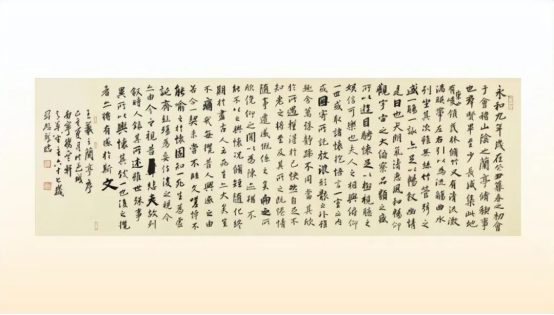 永和九年歲在癸丑暮春之初會
于會稽山陰之蘭亭脩稧事
也羣賢畢至少長咸集此地
有崇山峻領茂林脩竹又有清流激
湍暎帶左右引以為流觴曲水
列坐其次雖無絲竹管弦之
盛一觴一詠亦足以暢敘幽情
是日也天朗氣清惠風和暢仰
觀宇宙之大俯察品類之盛
所以遊目騁懷足以極視聽之
娛信可樂也夫人之相與俯仰
一世或取諸懷抱悟言一室之內
或因寄所託放浪形骸之外雖
趣舍萬殊靜躁不同當其欣
於所遇暫得於己快然自足不
知老之將至及其所之既惓情
隨事遷感慨係之矣向之所
欣俛仰之間以為陳迹猶不
能不以之興懷況脩短隨化終
期於盡古人云死生亦大矣豈
不痛哉每攬昔人興感之由
若合一契未嘗不臨文嗟悼不
能喻之於懷固知一死生為虛
誕齊彭殤為妄作後之視今
亦由今之視昔悲夫故列
敘時人錄其所述雖世殊事
異所以興懷其致一也後之攬
者亦將有感於斯文
王羲之蘭亭序